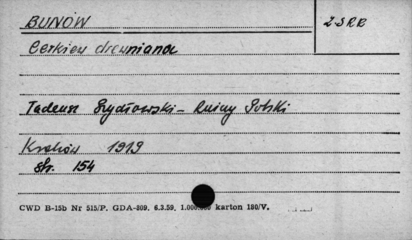 BUNÓW
ZSRR
Cerkiew drewniana
Tadeusz Szydłowski - Ruiny Polski
Kraków 1919
str. 154
CWD B-15b Nr 515/P. GDA-809. 6.3.59. 1.000.000 karton 180/V.